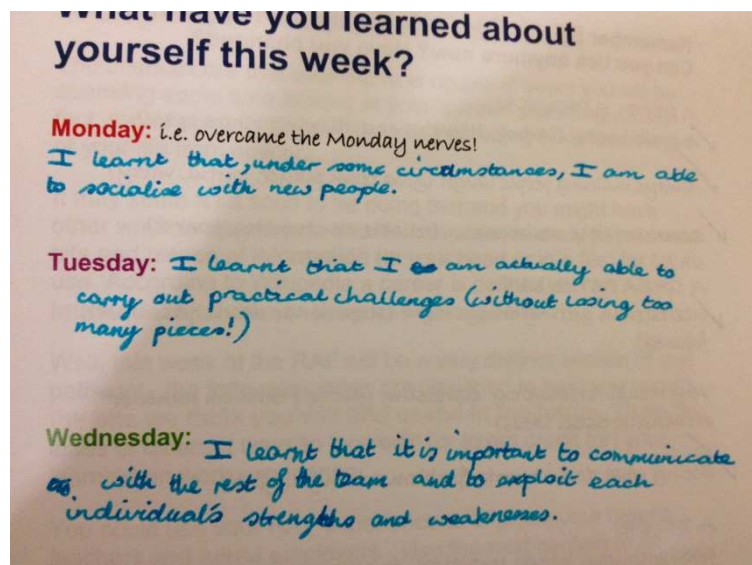 What have you learned about
yourself this week?
Monday: i.e. overcame the Monday nerves!
I learnt that, under some circumstances, I am able
to socialise with new people.
Tuesday: I learnt that I am actually able to
carry out practical challenges (without losing too
many pieces!)
Wednesday: I learnt that it is important to communicate
with the rest of the team and to exploit each
individual's strengths and weaknesses.